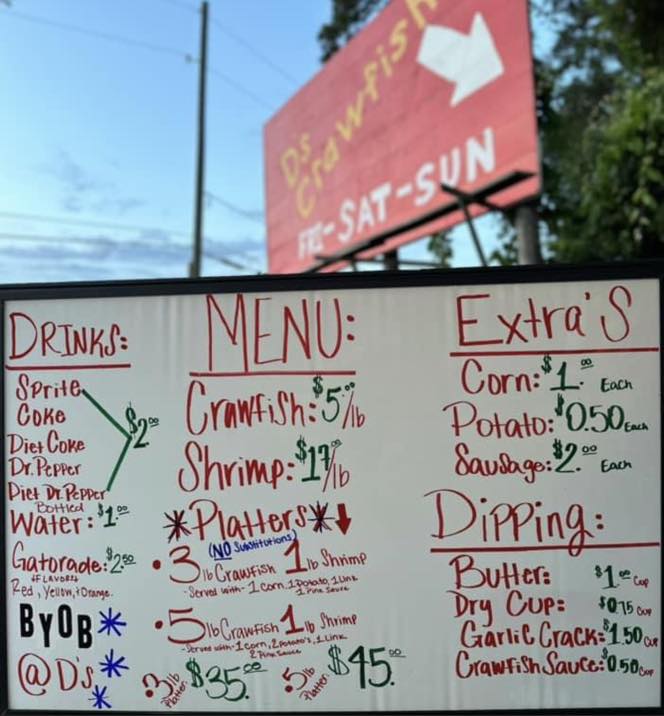 Ds
Crawfish
FRI-SAT-SUN
DRINKS:
Sprite
Coke
Diet Coke
Dr. Pepper
Diet Dr. Pepper
$2.00
Bottled
Water: $1.00
Gatorade: $2.50
Red, Yellow, + Orange.
BYOB*
@D's*
*
MENU:
Crawfish: $5.00/lb
Shrimp: $17.00/lb
*Platters*
(NO Substitutions)
• 3 lb Crawfish 1 lb Shrimp
- Served with - 1 corn, 1 Potato, 1 Link
1 Pink Sauce
• 5 lb Crawfish 1 lb Shrimp
- Served with - 1 corn, 2 Potato's, 1 Link
2 Pink Sauce
3 lb Platter: $35.00 5 lb Platter: $45.00
Extra'S
Corn: $1.00 Each
Potato: $0.50 Each
Sausage: $2.00 Each
Dipping:
Butter: $1.00 Cup
Dry Cup: $0.75 Cup
Garlic Crack: $1.50 Cup
Crawfish Sauce: $0.50 Cup